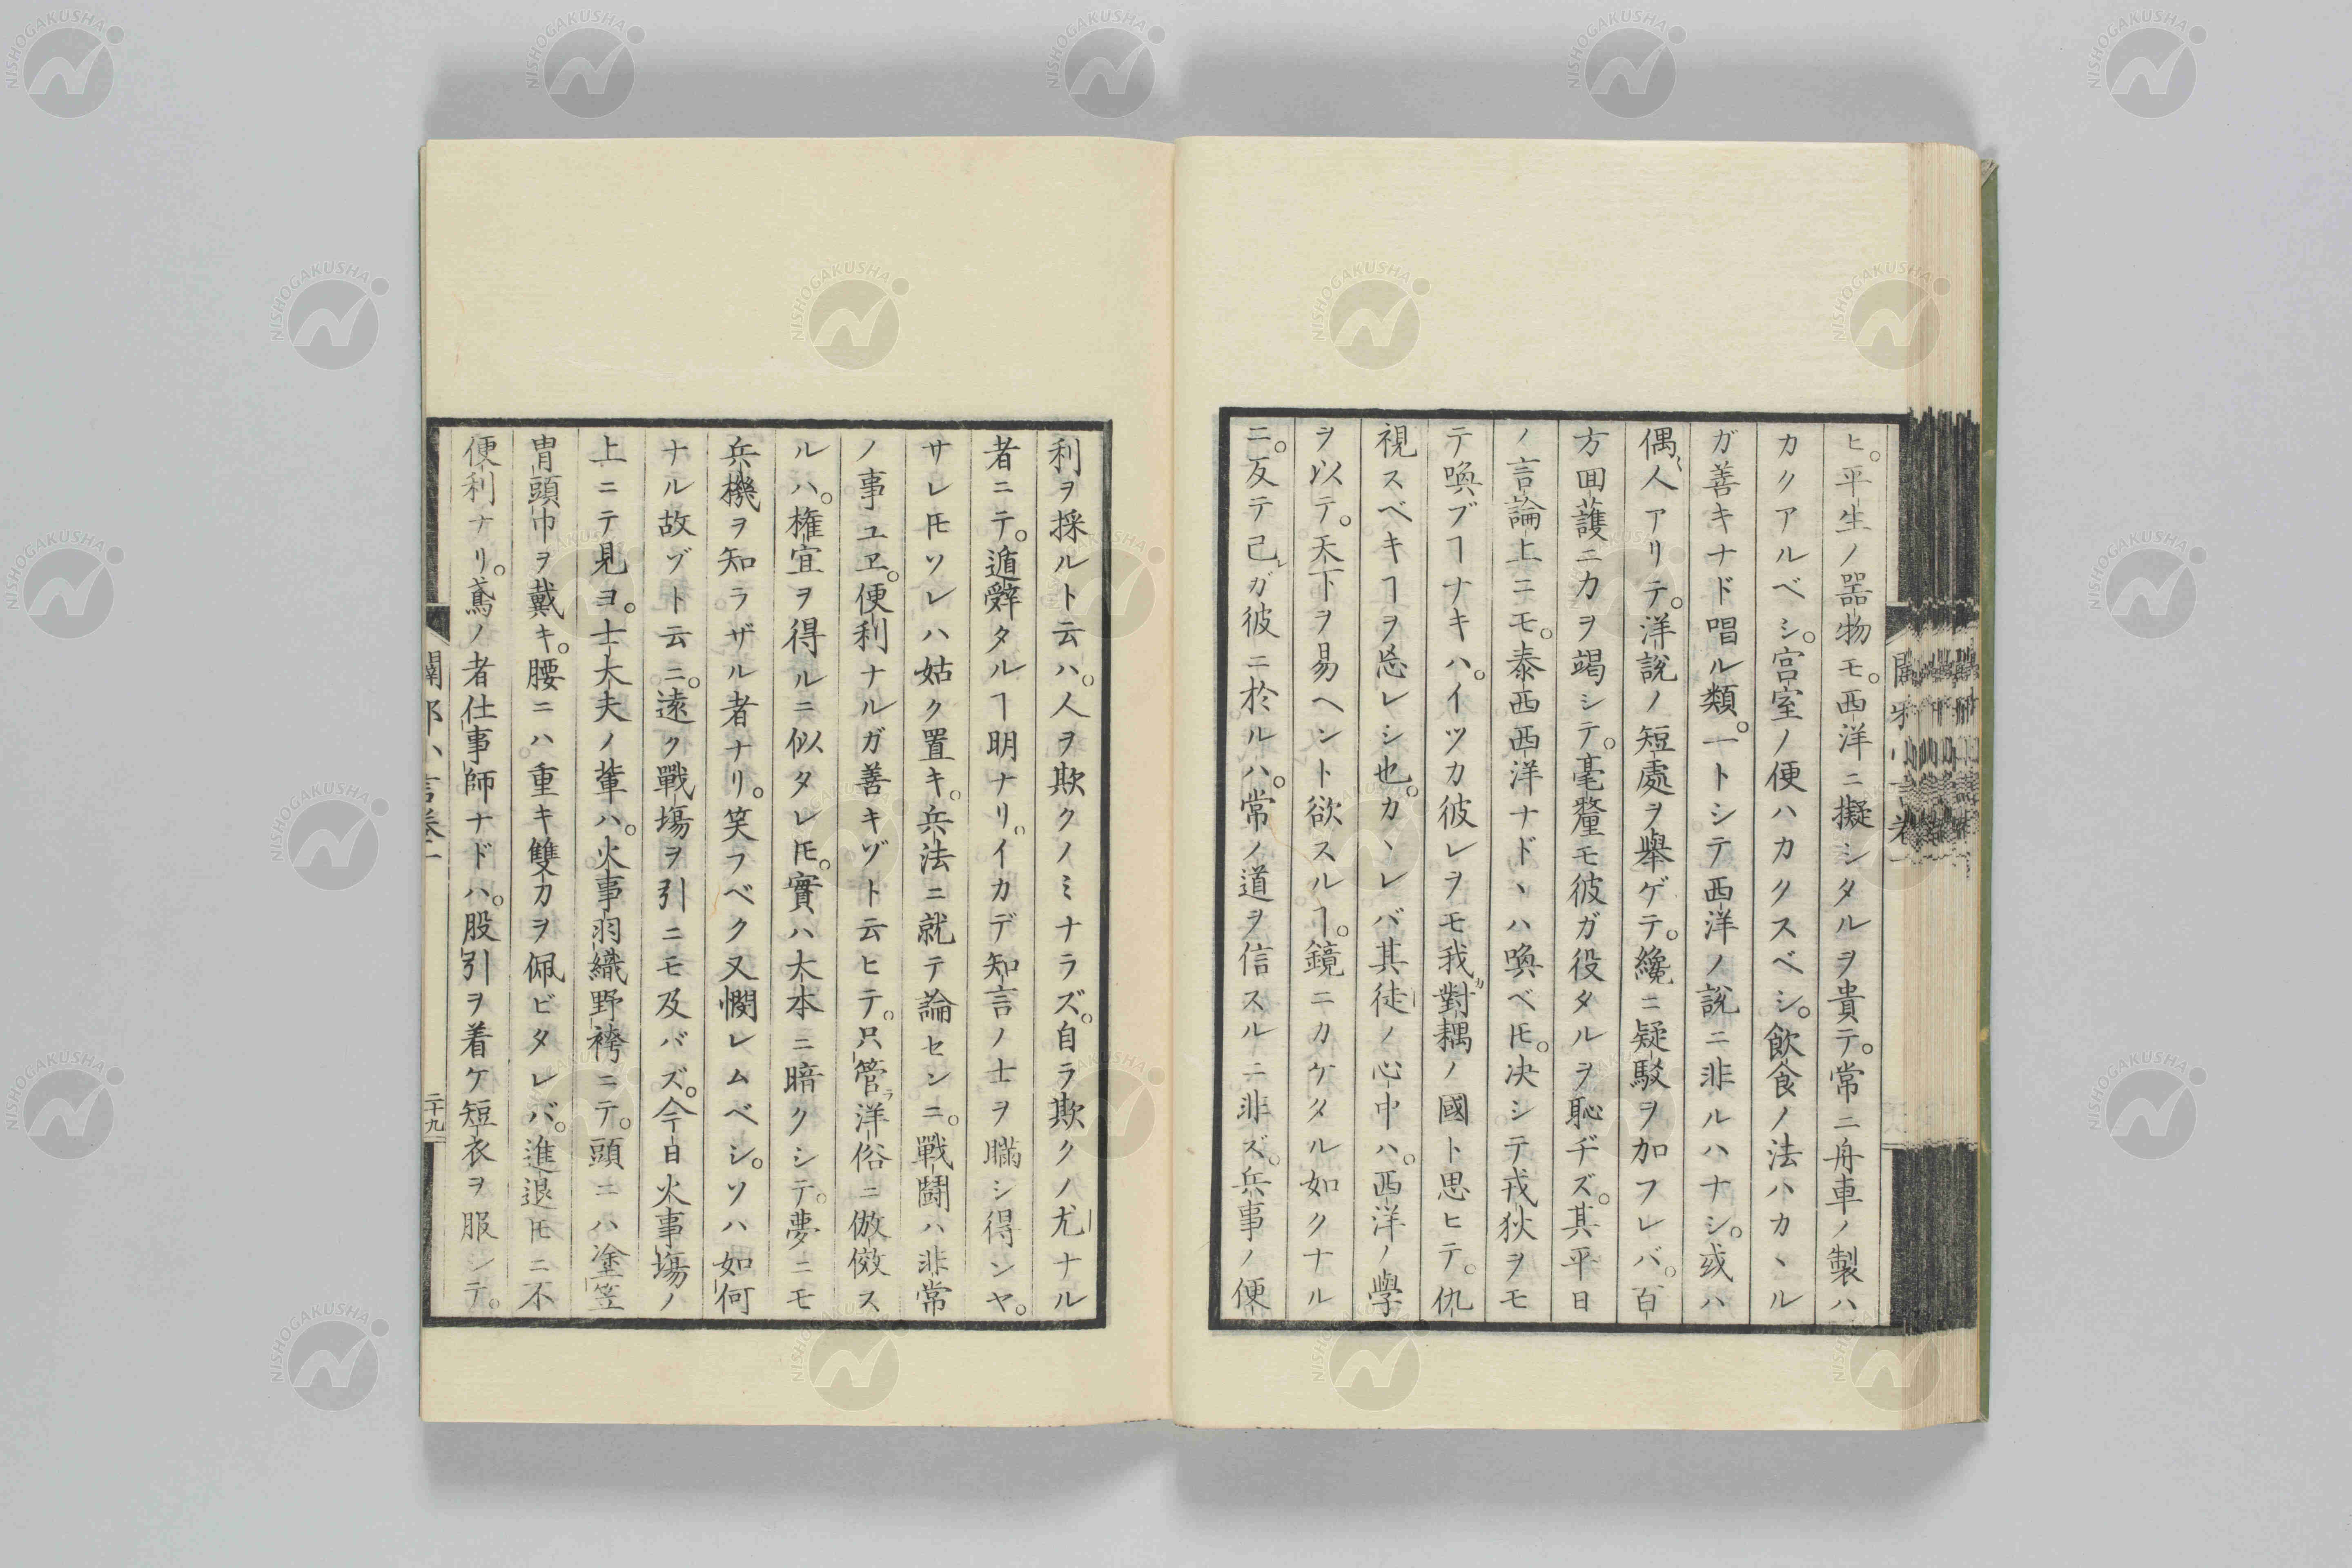 ヒ。平生ノ器物モ。西洋ニ擬シタルヲ貴テ。常ニ舟車ノ製ハ
カクアルベシ。宮室ノ便ハカクスベシ。飲食ノ法ハカヽル
ガ善キナド唱ル類。一トシテ西洋ノ說ニ非ルハナシ。或ハ
偶〻人アリテ。洋說ノ短處ヲ舉ゲテ。纔ニ疑駁ヲ加フレバ。百
方囬護ニ力ヲ竭シテ。毫釐モ彼ガ役タルヲ恥ヂズ。其平日
ノ言論上ニモ。泰西西洋ナドヽハ喚ベ𪜈。决シテ戎狄ヲモ
テ喚ブヿナキハ。イツカ彼レヲモ我ガ對耦ノ國ト思ヒテ。仇
視スベキヿヲ忘レシ也。カヽレバ其徒ノ心中ハ。西洋ノ學
ヲ以テ。天下ヲ易ヘント欲スルヿ。鏡ニカケタル如クナル
ニ。反テ己レガ彼ニ於ルハ。常ノ道ヲ信スルニ非ズ。兵事ノ便
利ヲ採ルト云ハ。人ヲ欺クノミナラズ。自ラ欺クノ尤ナル
者ニテ。遁辭タルヿ明ナリ。イカデ知言ノ士ヲ瞞シ得ンヤ。
サレ𪜈ソレハ姑ク置キ。兵法ニ就テ論センニ。戰鬪ハ非常
ノ事ユヱ。便利ナルガ善キゾト云ヒテ。只管ラ洋俗ニ倣傚ス
ルハ。権宜ヲ得ルニ似タレ𪜈。實ハ大本ニ暗クシテ。夢ニモ
兵機ヲ知ラザル者ナリ。笑フベク又憫レムベシ。ソハ如何
ナル故ゾト云ニ。遠ク戰場ヲ引ニモ及バズ。今日火事場ノ
上ニテ見ヨ。士大夫ノ輩ハ。火事羽織野袴ニテ。頭ニハ塗笠
冑頭巾ヲ戴キ。腰ニハ重キ雙刀ヲ佩ビタレバ。進退𪜈ニ不
便利ナリ。鳶ノ者仕事師ナドハ。股引ヲ着ケ短衣ヲ服シテ。
二十九
NISHOGAKUSHA